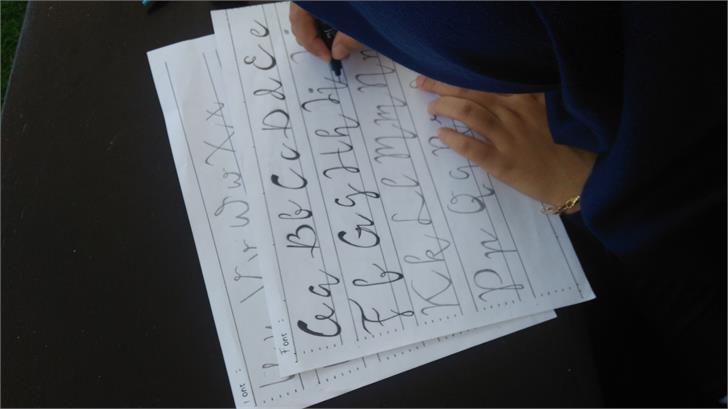 Font:
Aa Bb Cc Dd Ee
Ff Gg Hh Ii
Kk Ll Mm Nn
Pp Qq
Font:
Vv Ww Xx